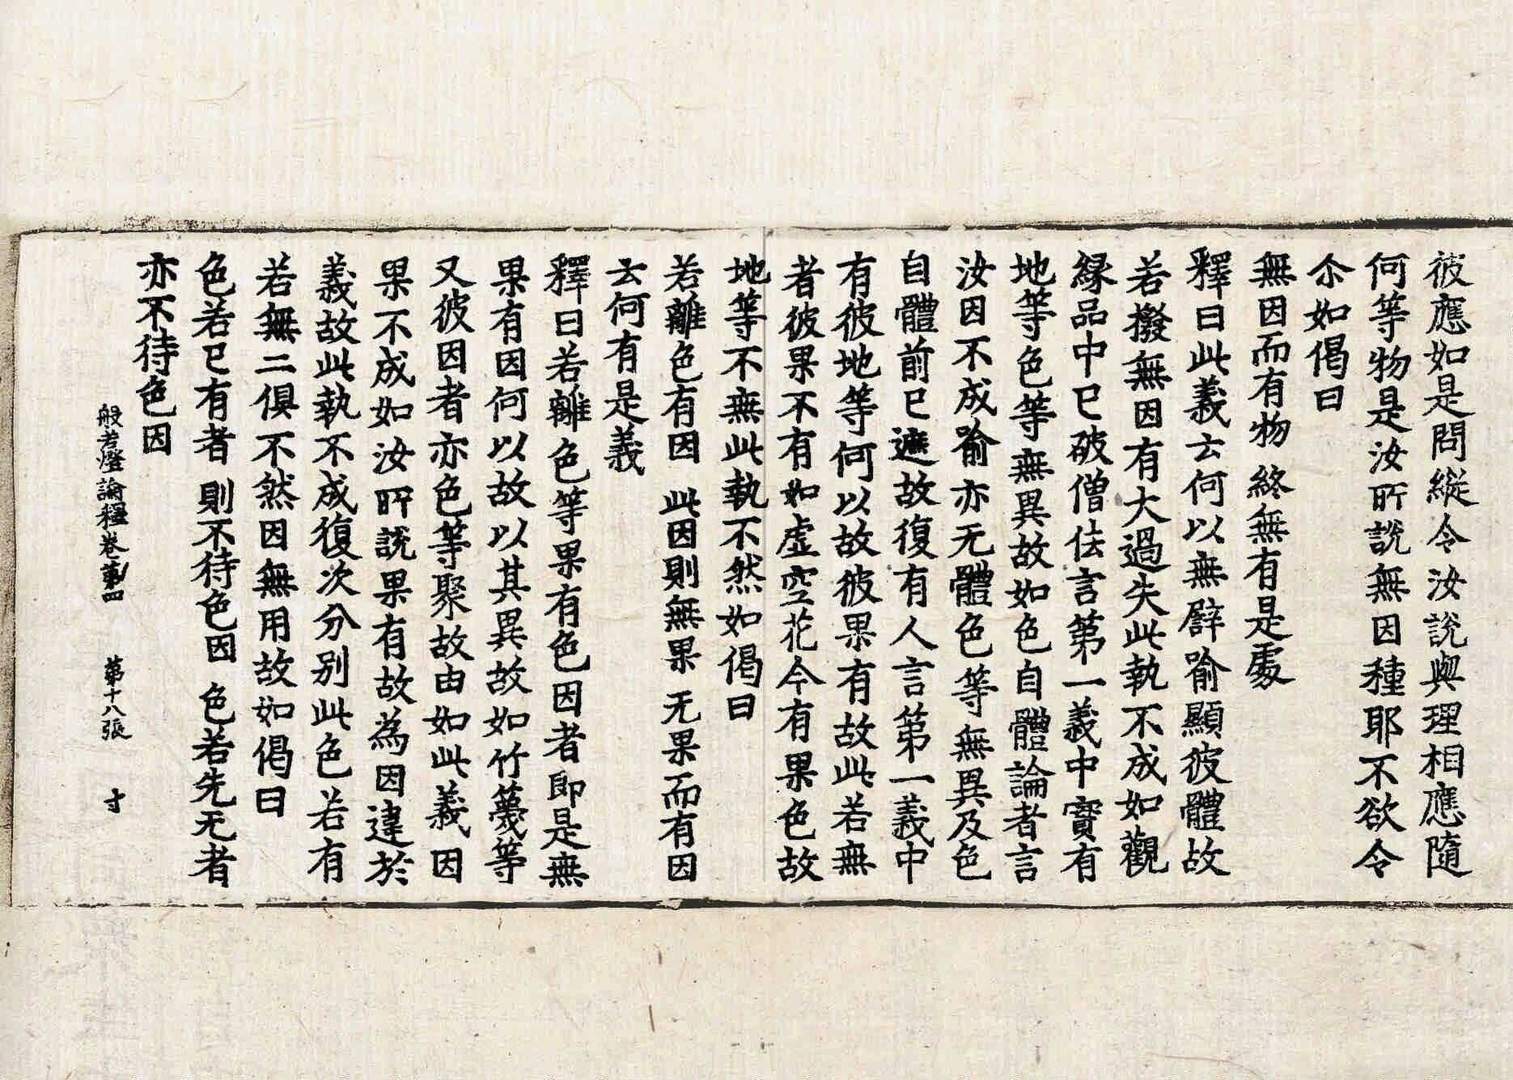 彼應如是問縱令汝說與理相應隨
何等物是汝所說無因種耶不欲令
尒如偈曰
無因而有物 終無有是處
釋曰此義云何以無譬喻顯彼體故
若撥無因有大過失此執不成如觀
緣品中已破僧佉言第一義中實有
地等色等無異故如色自體論者言
汝因不成喻亦无體色等無異及色
自體前已遮故復有人言第一義中
有彼地等何以故彼果有故此若無
者彼果不有如虛空花今有果色故
地等不無此執不然如偈曰
若離色有因 此因則無果 无果而有因
云何有是義
釋曰若離色等果有色因者即是無
果有因何以故以其異故如竹篾等
又彼因者亦色等聚故由如此義因
果不成如汝所說果有故為因違於
義故此執不成復次分別此色若有
若無二俱不然因無用故如偈曰
色若已有者 則不待色因 色若先无者
亦不待色因
般若燈論釋卷第四 第十八張 寸